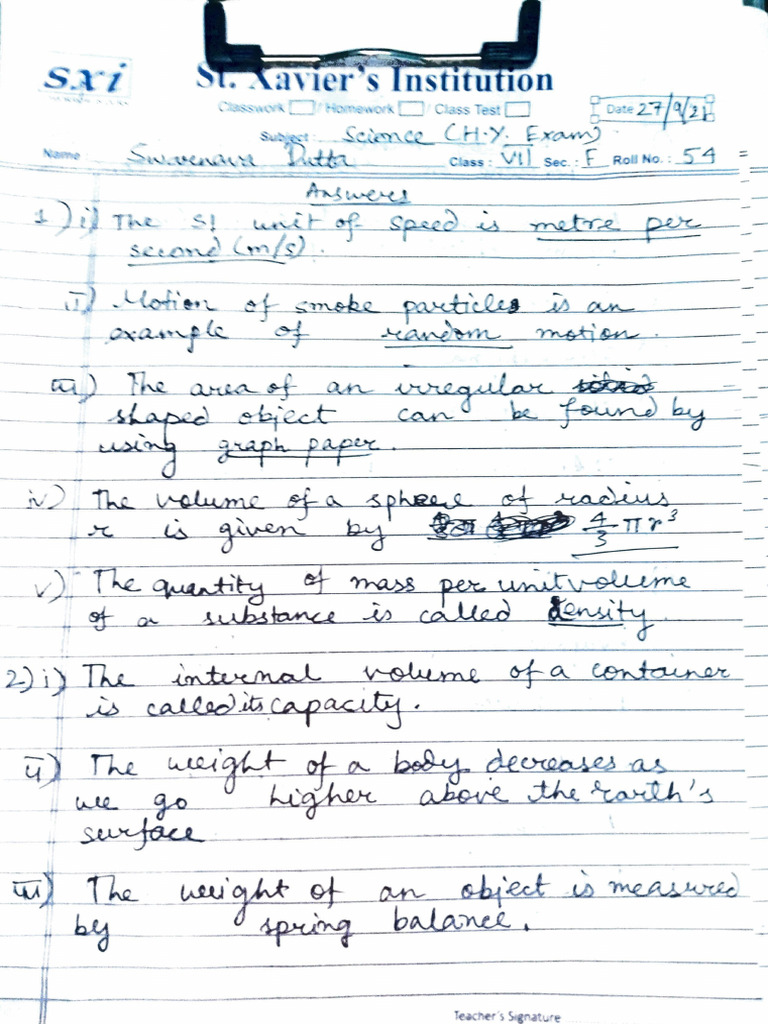 sxi St. Xavier's Institution
Classwork / Homework / Class Test
Date 27/9/21
Subject: Science (H.Y. Exam)
Name Swarenava Dutta Class: VII Sec.: F Roll No.: 54
Answers
1) i) The SI unit of speed is metre per
second (m/s).
ii) Motion of smoke particles is an
example of random motion.
iii) The area of an irregular
shaped object can be found by
using graph paper.
iv) The volume of a sphere of radius
r is given by 4/3 πr³
v) The quantity of mass per unit volume
of a substance is called density.
2) i) The internal volume of a container
is called its capacity.
ii) The weight of a body decreases as
we go higher above the Earth's
surface
iii) The weight of an object is measured
by spring balance.
Teacher's Signature